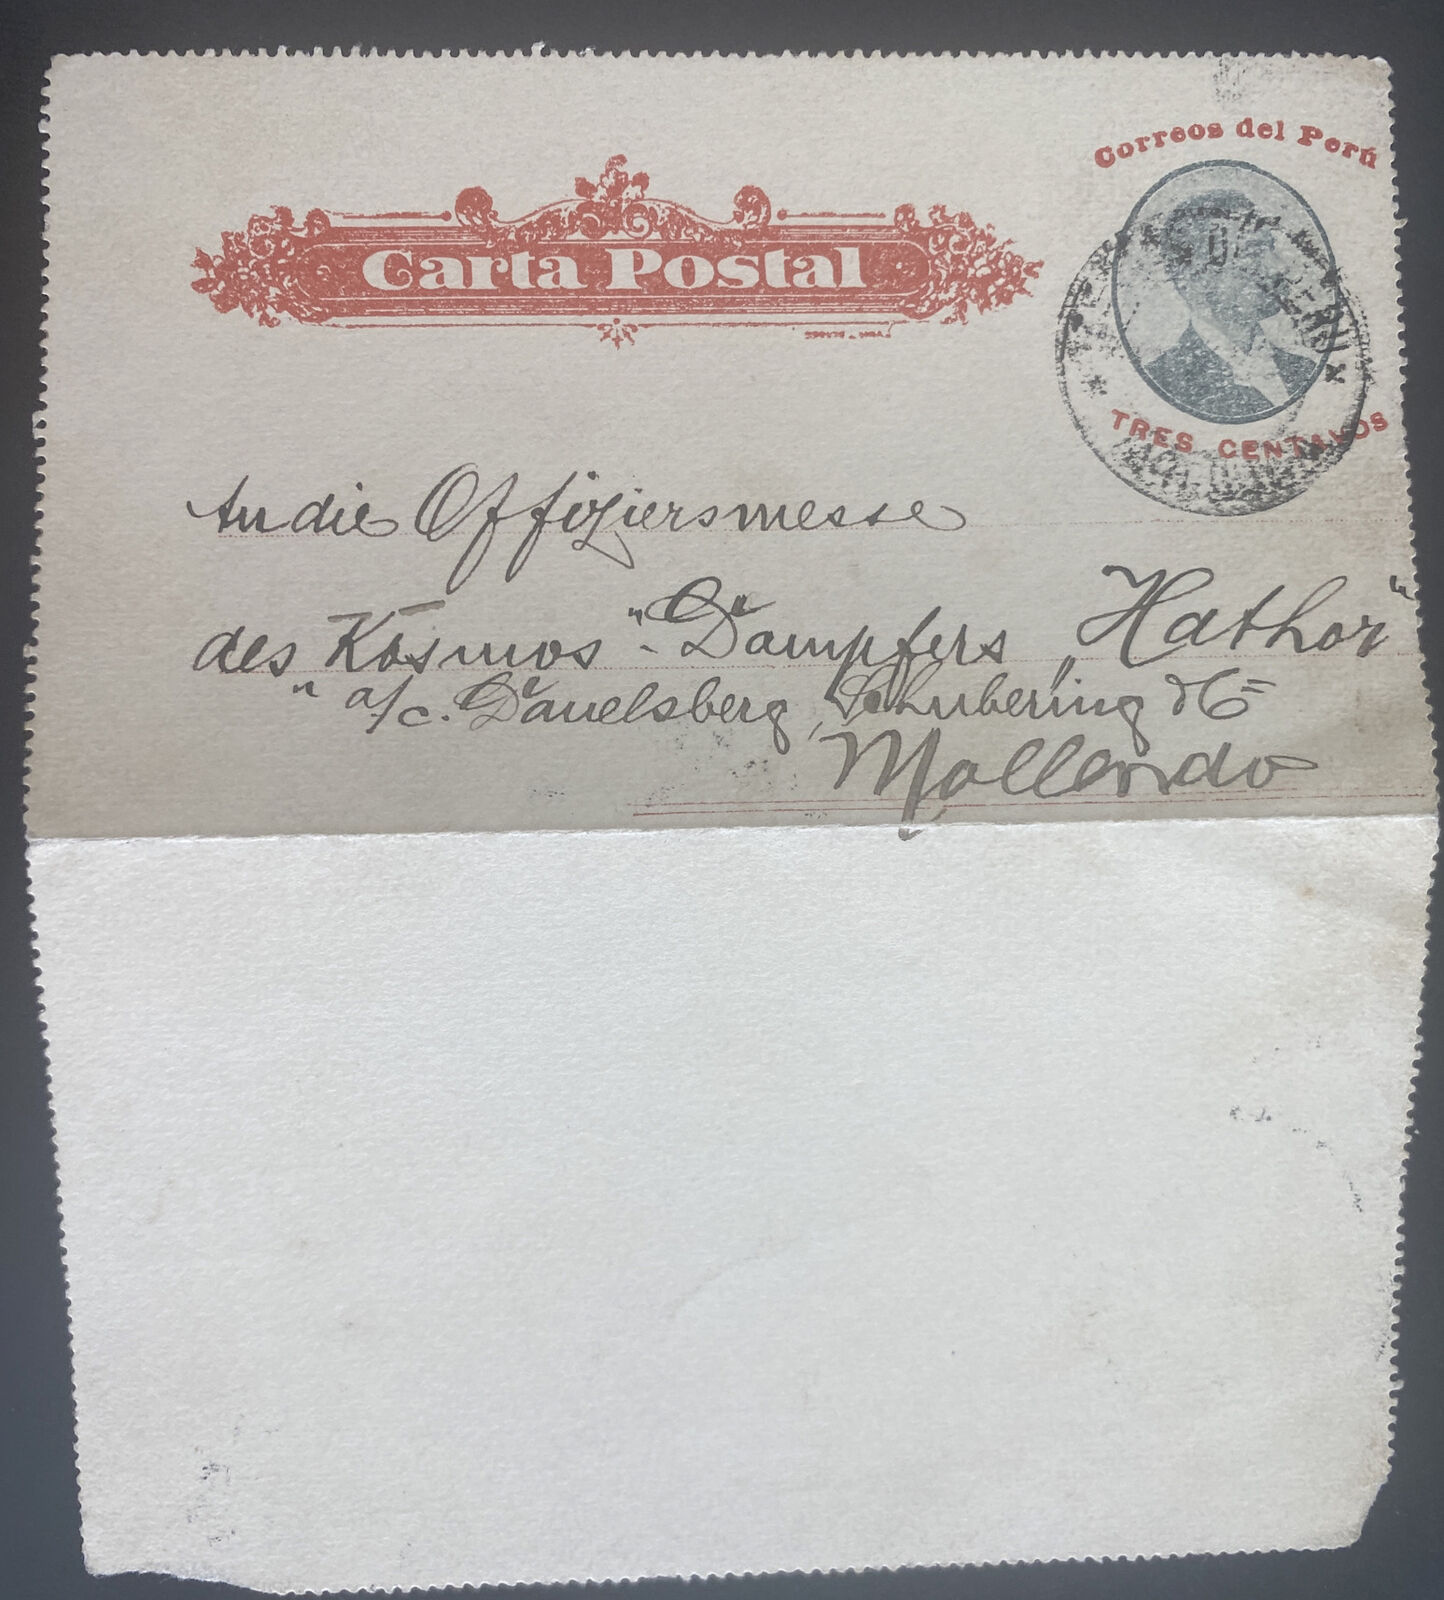 Correos del Perú
Carta Postal
DEL PERU
TRES CENTAVOS
An die Offiziersmesse
des "Kosmos"-Dampfers "Hathor"
a/c. Dauelsberg, Schubering & Co
Mollendo